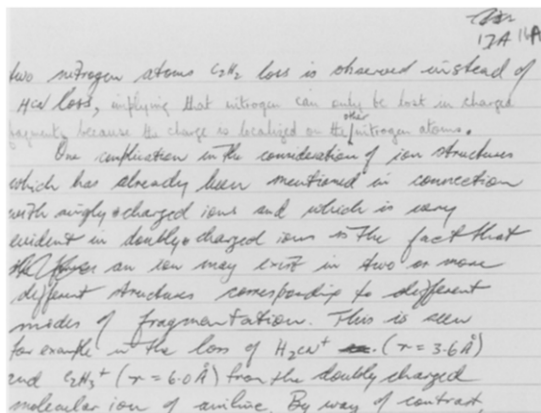 17A 14A
two nitrogen atoms C2H2 loss is observed instead of
HCN loss, implying that nitrogen can only be lost in charged
fragments because the charge is localized on the other nitrogen atoms.
One complication in the consideration of ion structures
which has already been mentioned in connection
with singly charged ions and which is very
evident in doubly charged ions is the fact that
an ion may exist in two or more
different structures corresponding to different
modes of fragmentation. This is seen
for example in the loss of H2CN+ (r = 3.6 Å)
and C2H3+ (r = 6.0 Å) from the doubly charged
molecular ion of aniline. By way of contrast